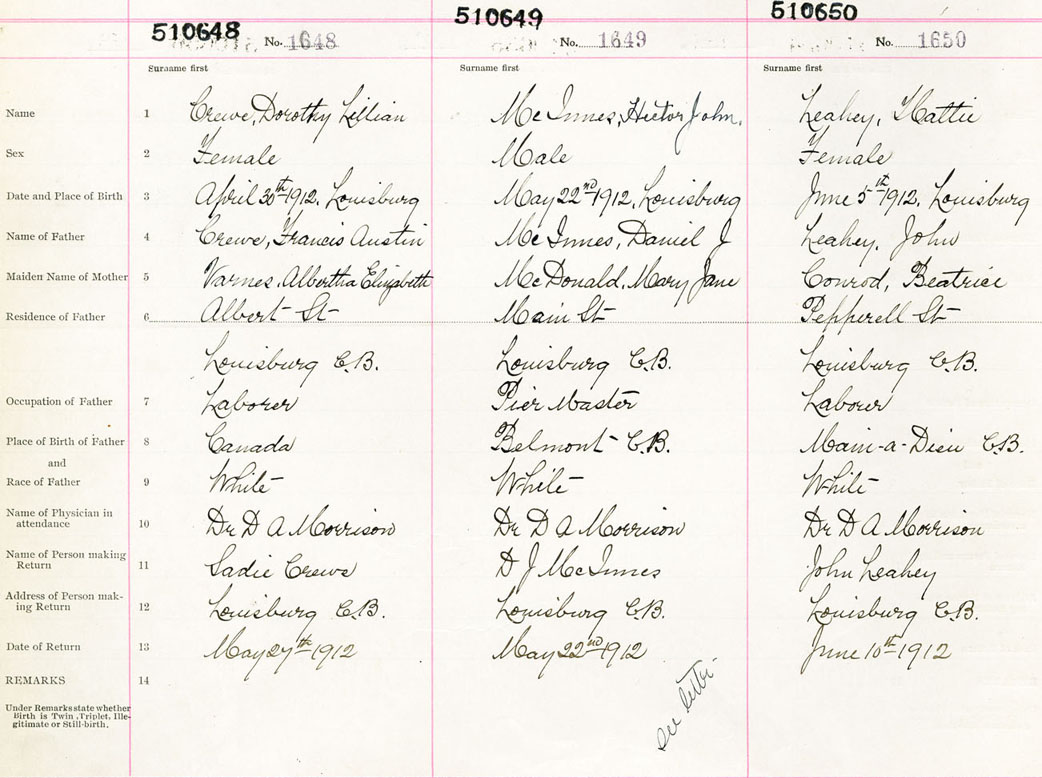 510648 510649 510650
No. 1648 No. 1649 No. 1650
Surname first Surname first Surname first
Name 1 Crewe, Dorothy Lillian McInnes, Hector John, Leahey, Mattie
Sex 2 Female Male Female
Date and Place of Birth 3 April 30th 1912, Louisburg May 22nd 1912, Louisburg June 5th 1912, Louisburg
Name of Father 4 Crewe, Francis Austin McInnes, Daniel J Leahey, John
Maiden Name of Mother 5 Varnes, Albertha Elizabeth McDonald, Mary Jane Conrod, Beatrice
Residence of Father 6 Albert St Main St Pepperell St
Louisburg C.B. Louisburg C.B. Louisburg C.B.
Occupation of Father 7 Laborer Pier Master Laborer
Place of Birth of Father 8 Canada Belmont C.B. Main-a-Dieu C.B.
and
Race of Father 9 White White White
Name of Physician in
attendance 10 Dr D A Morrison Dr D A Morrison Dr D A Morrison
Name of Person making
Return 11 Sadie Crewe D J McInnes John Leahey
Address of Person mak-
ing Return 12 Louisburg C.B. Louisburg C.B. Louisburg C.B.
Date of Return 13 May 27th 1912 May 22nd 1912 June 10th 1912
REMARKS 14
see letter
Under Remarks state whether
Birth is Twin, Triplet, Ille-
gitimate or Still-birth.